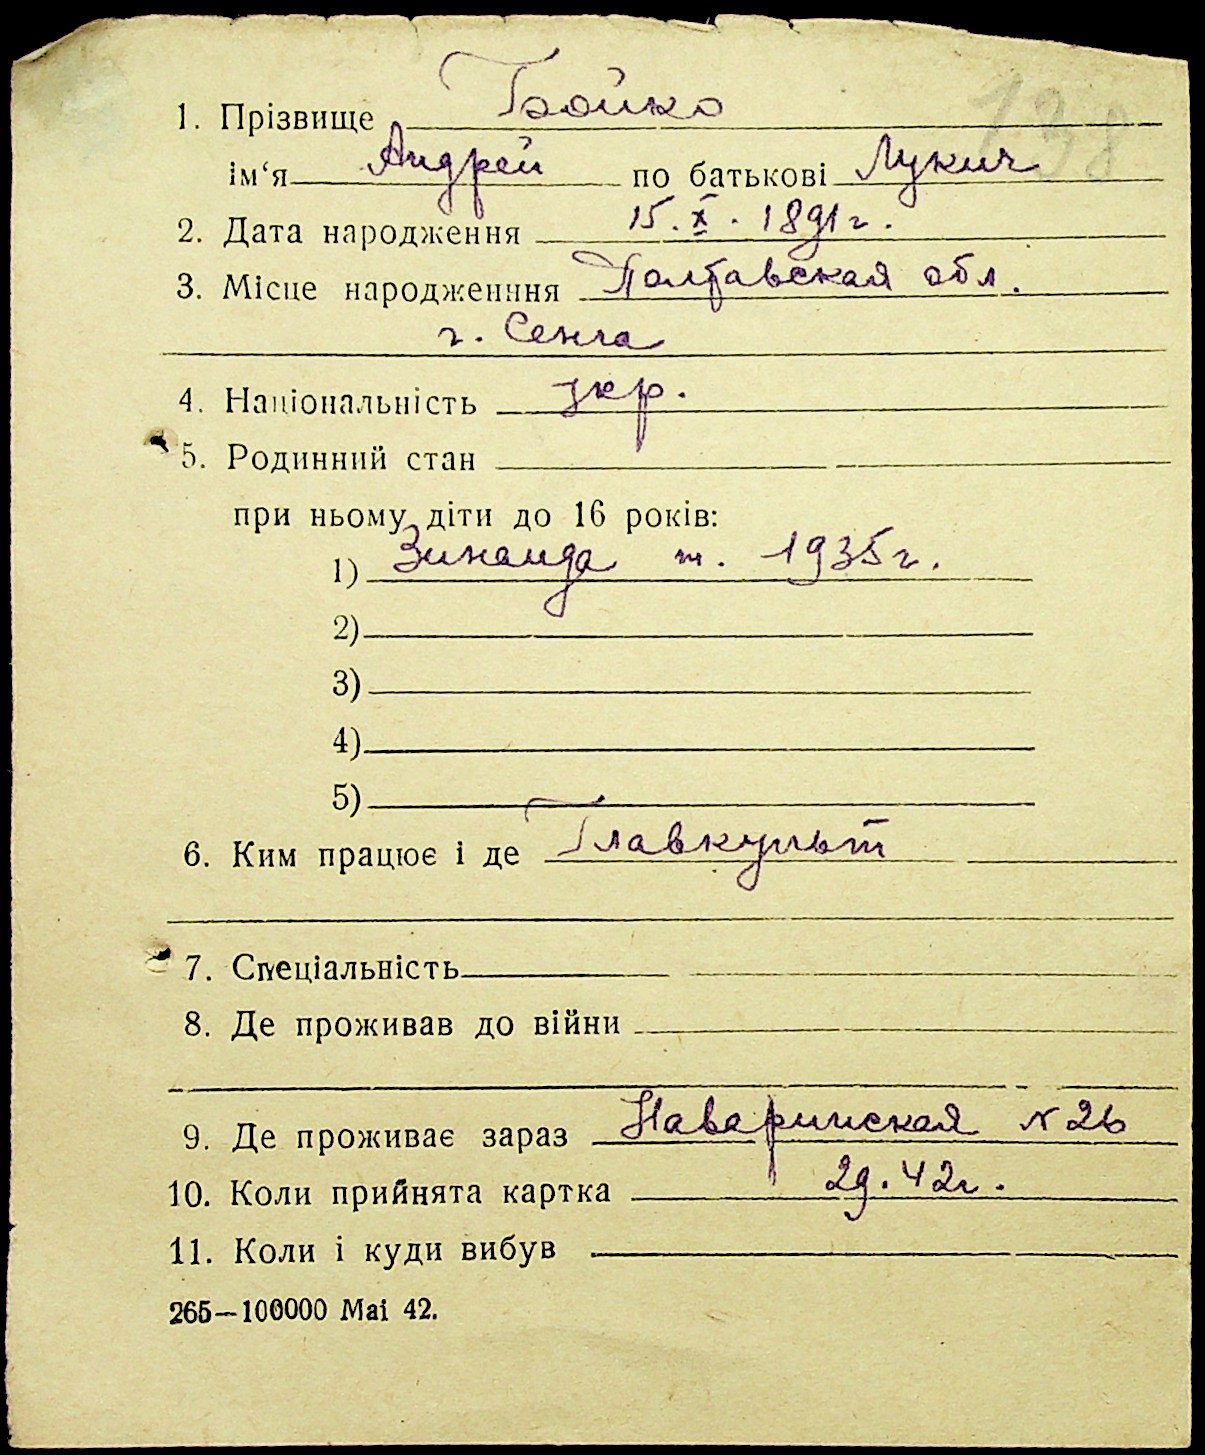 138
1. Прізвище Бойко
ім‘я Андрей по батькові Лукич
2. Дата народження 15.X.1891г.
3. Місце народженння Полтавская обл.
г. Сенча
4. Національність укр.
5. Родинний стан
при ньому діти до 16 років:
1) Зинаида т. 1935г.
2)
3)
4)
5)
6. Ким працює і де Главкульт
7. Спеціальність
8. Де проживав до війни
9. Де проживає зараз Наваринская N 26
10. Коли прийнята картка 29.42г.
11. Коли і куди вибув
265—100000 Mai 42.